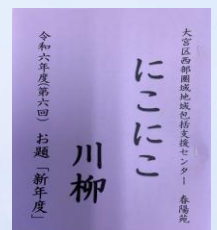 大宮区西部圏域地域包括支援センター 春陽苑
にこにこ
川柳
令和六年度(第六回) お題「新年度」